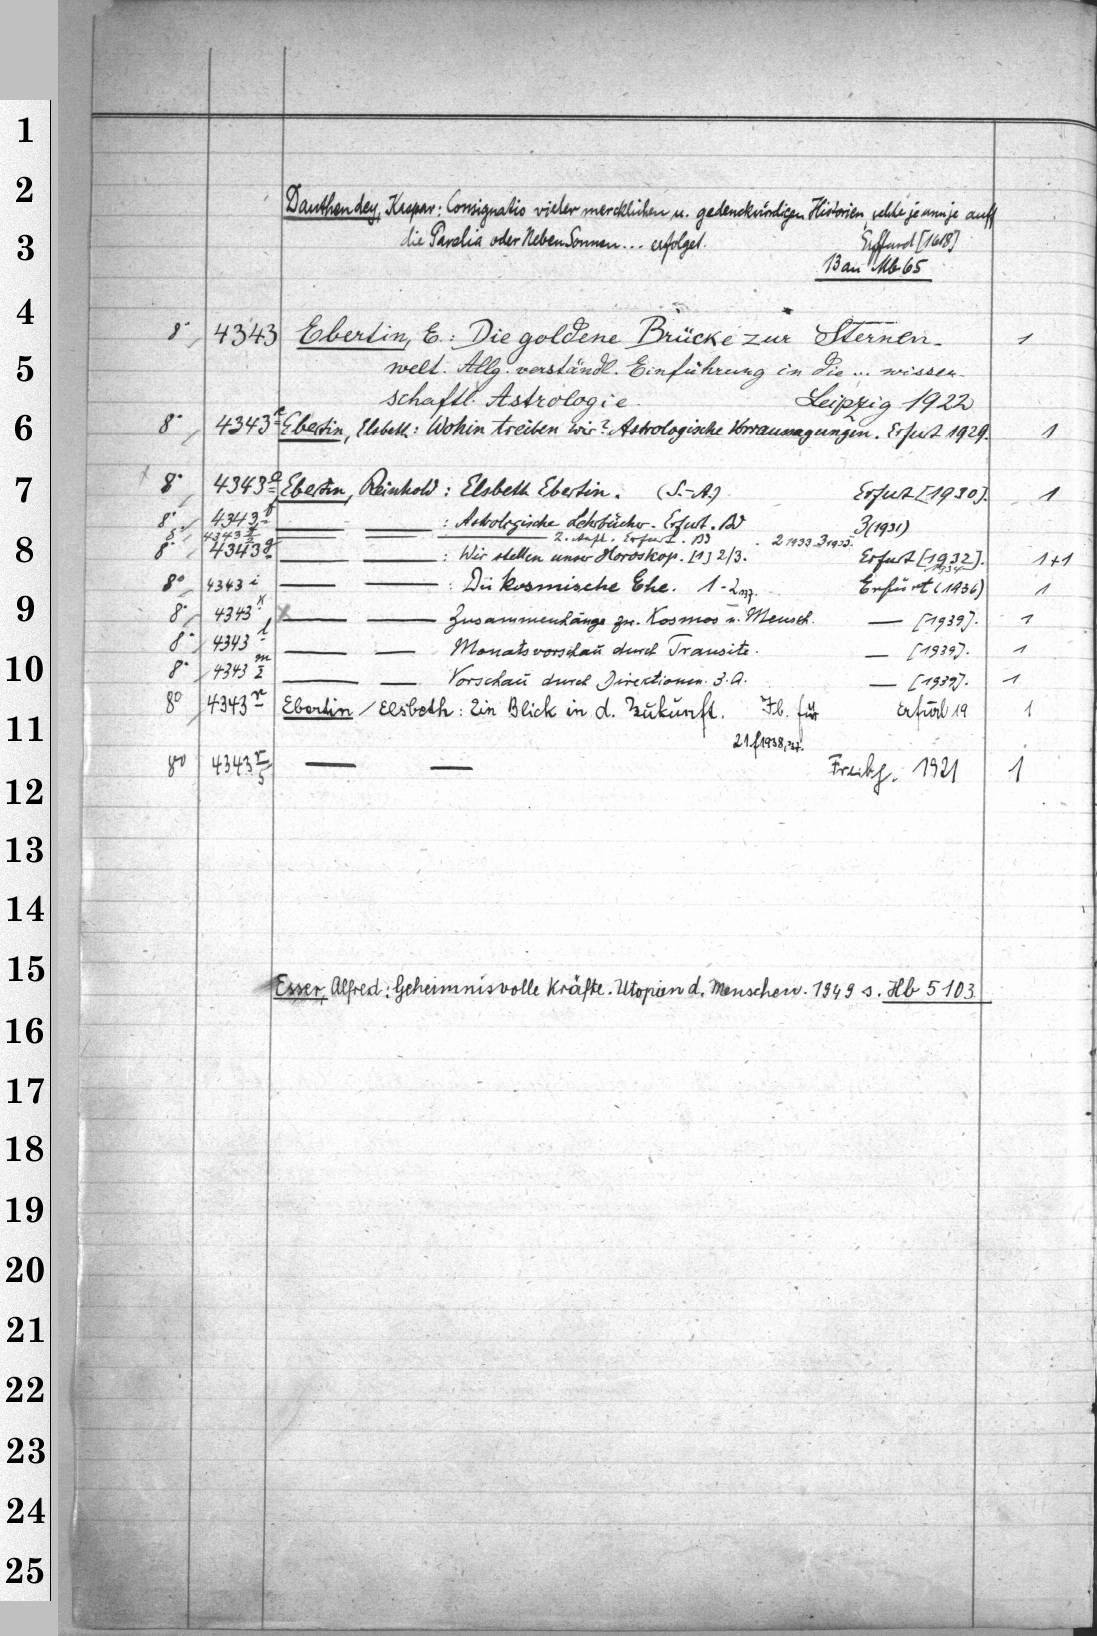 1
2
Dauthendey, Kaspar: Consignatio vieler mercklichen u. gedenckwürdigen Historien, welche je unn je auff
3
die Parelia oder NebenSonnen... erfolget. Erffurd [1618]
13 an Mb 65
4
8° 4343 Ebertin, E.: Die goldene Brücke zur Sternen-
1
5
welt. Allg. verständl. Einführung in die ... wissen-
schaftl. Astrologie. Leipzig 1922
6
8° 4343 Ebertin, Elsbeth: Wohin treiben wir? Astrologische Vorraussagungen. Erfurt 1929. 1
7
8° 4343a Ebertin, Reinhold: Elsbeth Ebertin. (S.-A.) Erfurt [1930]. 1
8° 4343 : Astrologische Lehrbücher. Erfurt. Bd 3 (1931)
8° 4343 2. Aufl. Erfurt. Bd 2 1933 3 1933.
8
8° 4343g : Wir stellen unser Horoskop. [1] 2/3. Erfurt [1932]. 1+1
1934
8° 4343 i : Die kosmische Ehe. 1-2 Erfurt (1936) 1
9
8° 4343 k Zusammenhänge zw. Kosmos u. Mensch. — [1939]. 1
8° 4343 l Monatsvorschau durch Transite. — [1939]. 1
10
8° 4343 m Vorschau durch Direktionen. 3. A. — [1939]. 1
8° 4343 n Ebertin, Elsbeth: Ein Blick in d. Zukunft. Jb. für Erfurt 19 1
11
21.f1938
8° 4343 — — Freibg. 1921 1
12
13
14
15
Esser, Alfred: Geheimnisvolle Kräfte. Utopien d. Menschen. 1949 s. Hb 5103
16
17
18
19
20
21
22
23
24
25